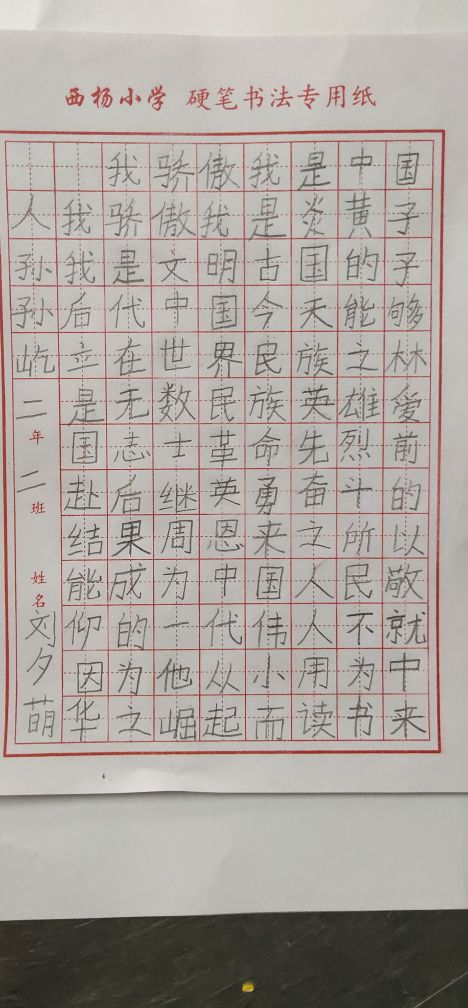 西杨小学 硬笔书法专用纸
我骄傲我是中国
人我骄傲我是炎黄子
孙我是文明古国的子
孙后代中国今天能够
屹立在世界民族之林
是无数民族英雄爱
国志士革命先烈前
赴后继英勇奋斗的
结果周恩来之所以
能成为中国人民敬
仰的一代伟人不就
因为他从小用为中
华之崛起而读书来
二年二班 姓名刘夕萌